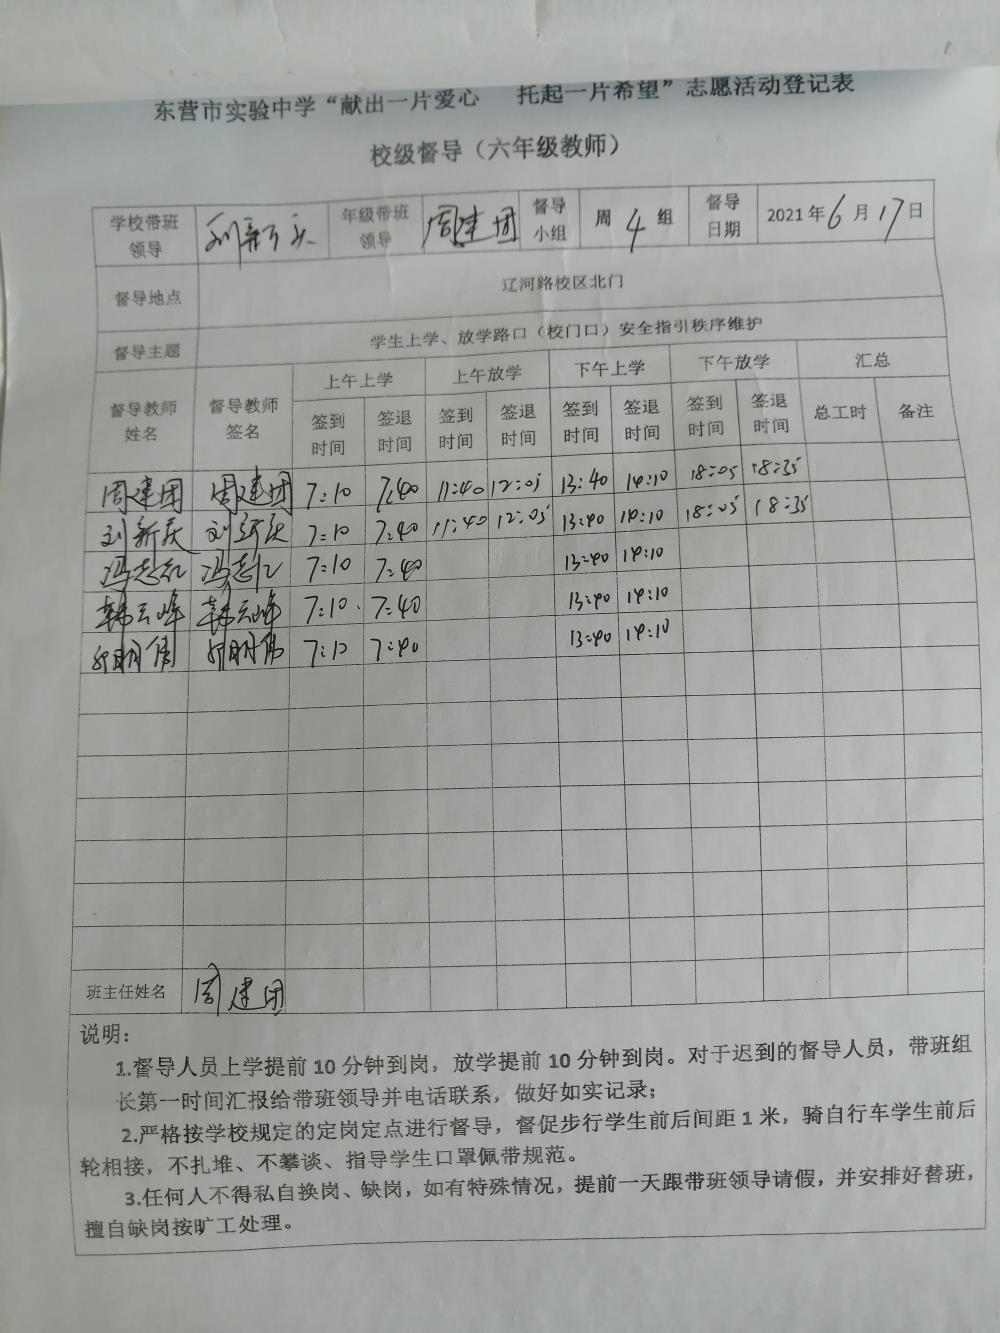 东营市实验中学“献出一片爱心 托起一片希望”志愿活动登记表
校级督导（六年级教师）
学校带班领导 刘新庆 年级带班领导 周建团 督导小组 周4组 督导日期 2021年6月17日
督导地点 辽河路校区北门
督导主题 学生上学、放学路口（校门口）安全指引秩序维护
督导教师姓名 督导教师签名 上午上学 上午放学 下午上学 下午放学 汇总
签到时间 签退时间 签到时间 签退时间 签到时间 签退时间 签到时间 签退时间 总工时 备注
周建团 周建团 7:10 7:40 11:40 12:05 13:40 14:10 18:05 18:35
刘新庆 刘新庆 7:10 7:40 11:40 12:05 13:40 14:10 18:05 18:35
冯志 冯志 7:10 7:40 13:40 14:10
韩云峰 韩云峰 7:10 7:40 13:40 14:10
明伟 明伟 7:10 7:40 13:40 14:10
班主任姓名 周建团
说明：
1.督导人员上学提前10分钟到岗，放学提前10分钟到岗。对于迟到的督导人员，带班组
长第一时间汇报给带班领导并电话联系，做好如实记录；
2.严格按学校规定的定岗定点进行督导，督促步行学生前后间距1米，骑自行车学生前后
轮相接，不扎堆、不攀谈、指导学生口罩佩带规范。
3.任何人不得私自换岗、缺岗，如有特殊情况，提前一天跟带班领导请假，并安排好替班，
擅自缺岗按旷工处理。